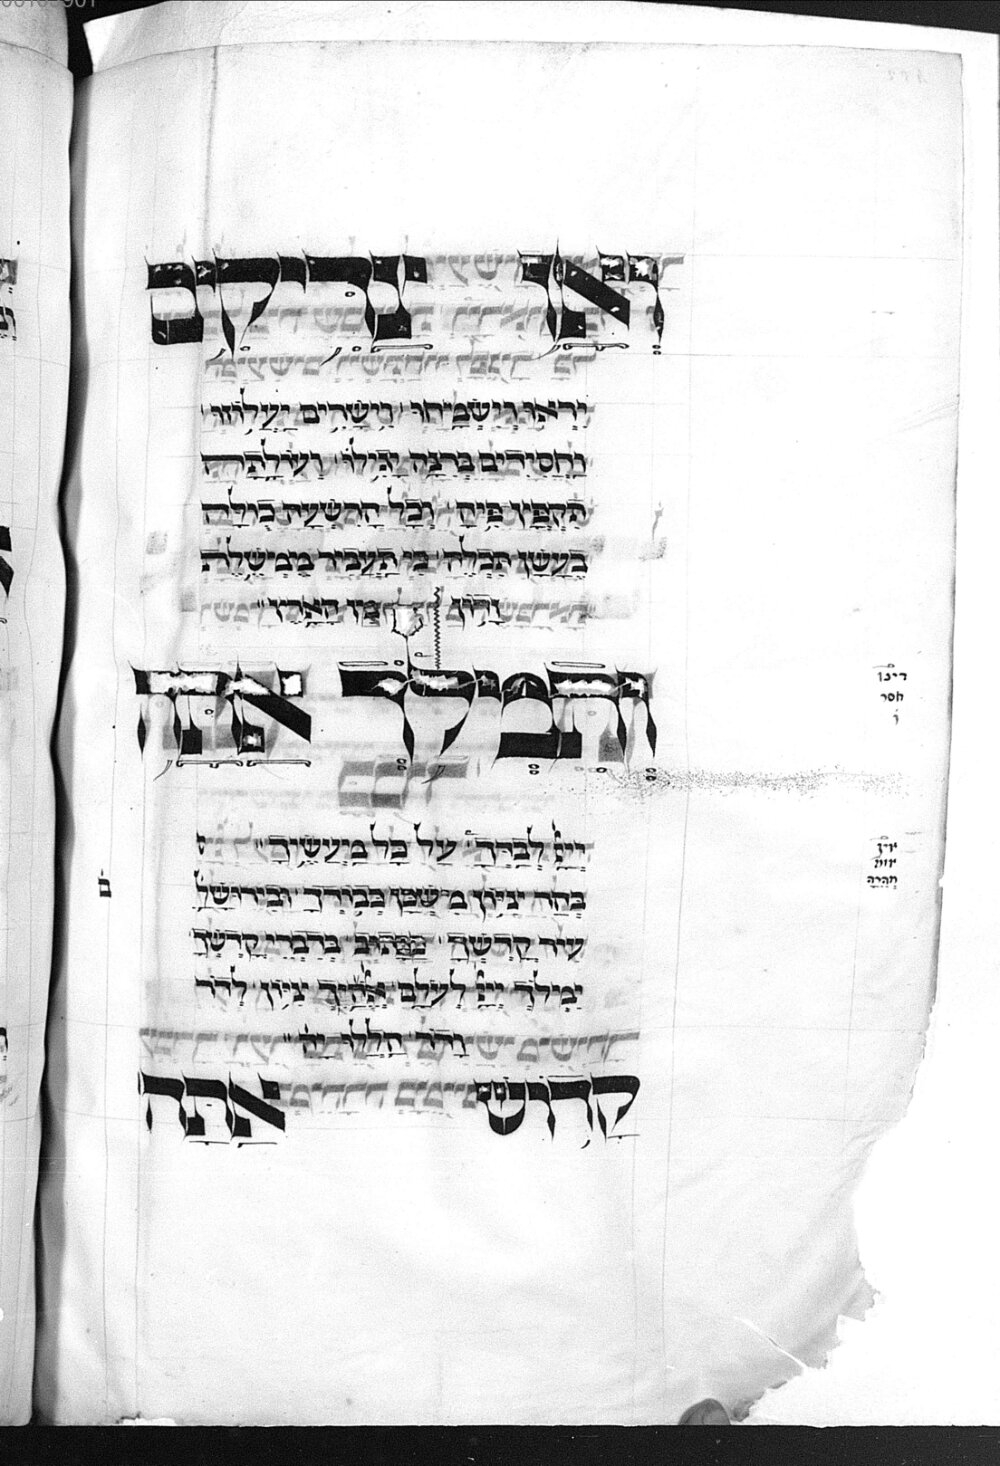 וְאָז צַדִּיקִים
יִרְאוּ וְיִשְׂמָחוּ וִישָׁרִים יַעֲלוֹזוּ
וַחֲסִידִים בְּרִנָּה יָגִילוּ וְעוֹלָתָה
תִּקְפָּץ פִּיהָ וְכָל הָרִשְׁעָה כֻולָּהּ
בְּעָשָׁן תִּכְלֶה כִּי תַעֲבִיר מֶמְשֶׁלֶת
זָדוֹן מִן הָאָרֶץ
וְתִמְלֹךְ אַתָּה
יְיָ לְבַדֶּךָ עַל כָּל מַעֲשֶׂיךָ
בְּהַר צִיּוֹן מִשְׁכַּן כְּבוֹדֶךָ וּבִירוּשָׁלַ
עִיר קָדְשֶׁךָ כַּכָּתוּב בְּדִבְרֵי קָדְשֶׁךָ
יִמְלוֹךְ יְיָ לְעוֹלָם אֱלֹהַיִךְ צִיּוֹן לְדֹר
וָדֹר הַלְלוּיָהּ
קָדוֹשׁ אַתָּה
חסר